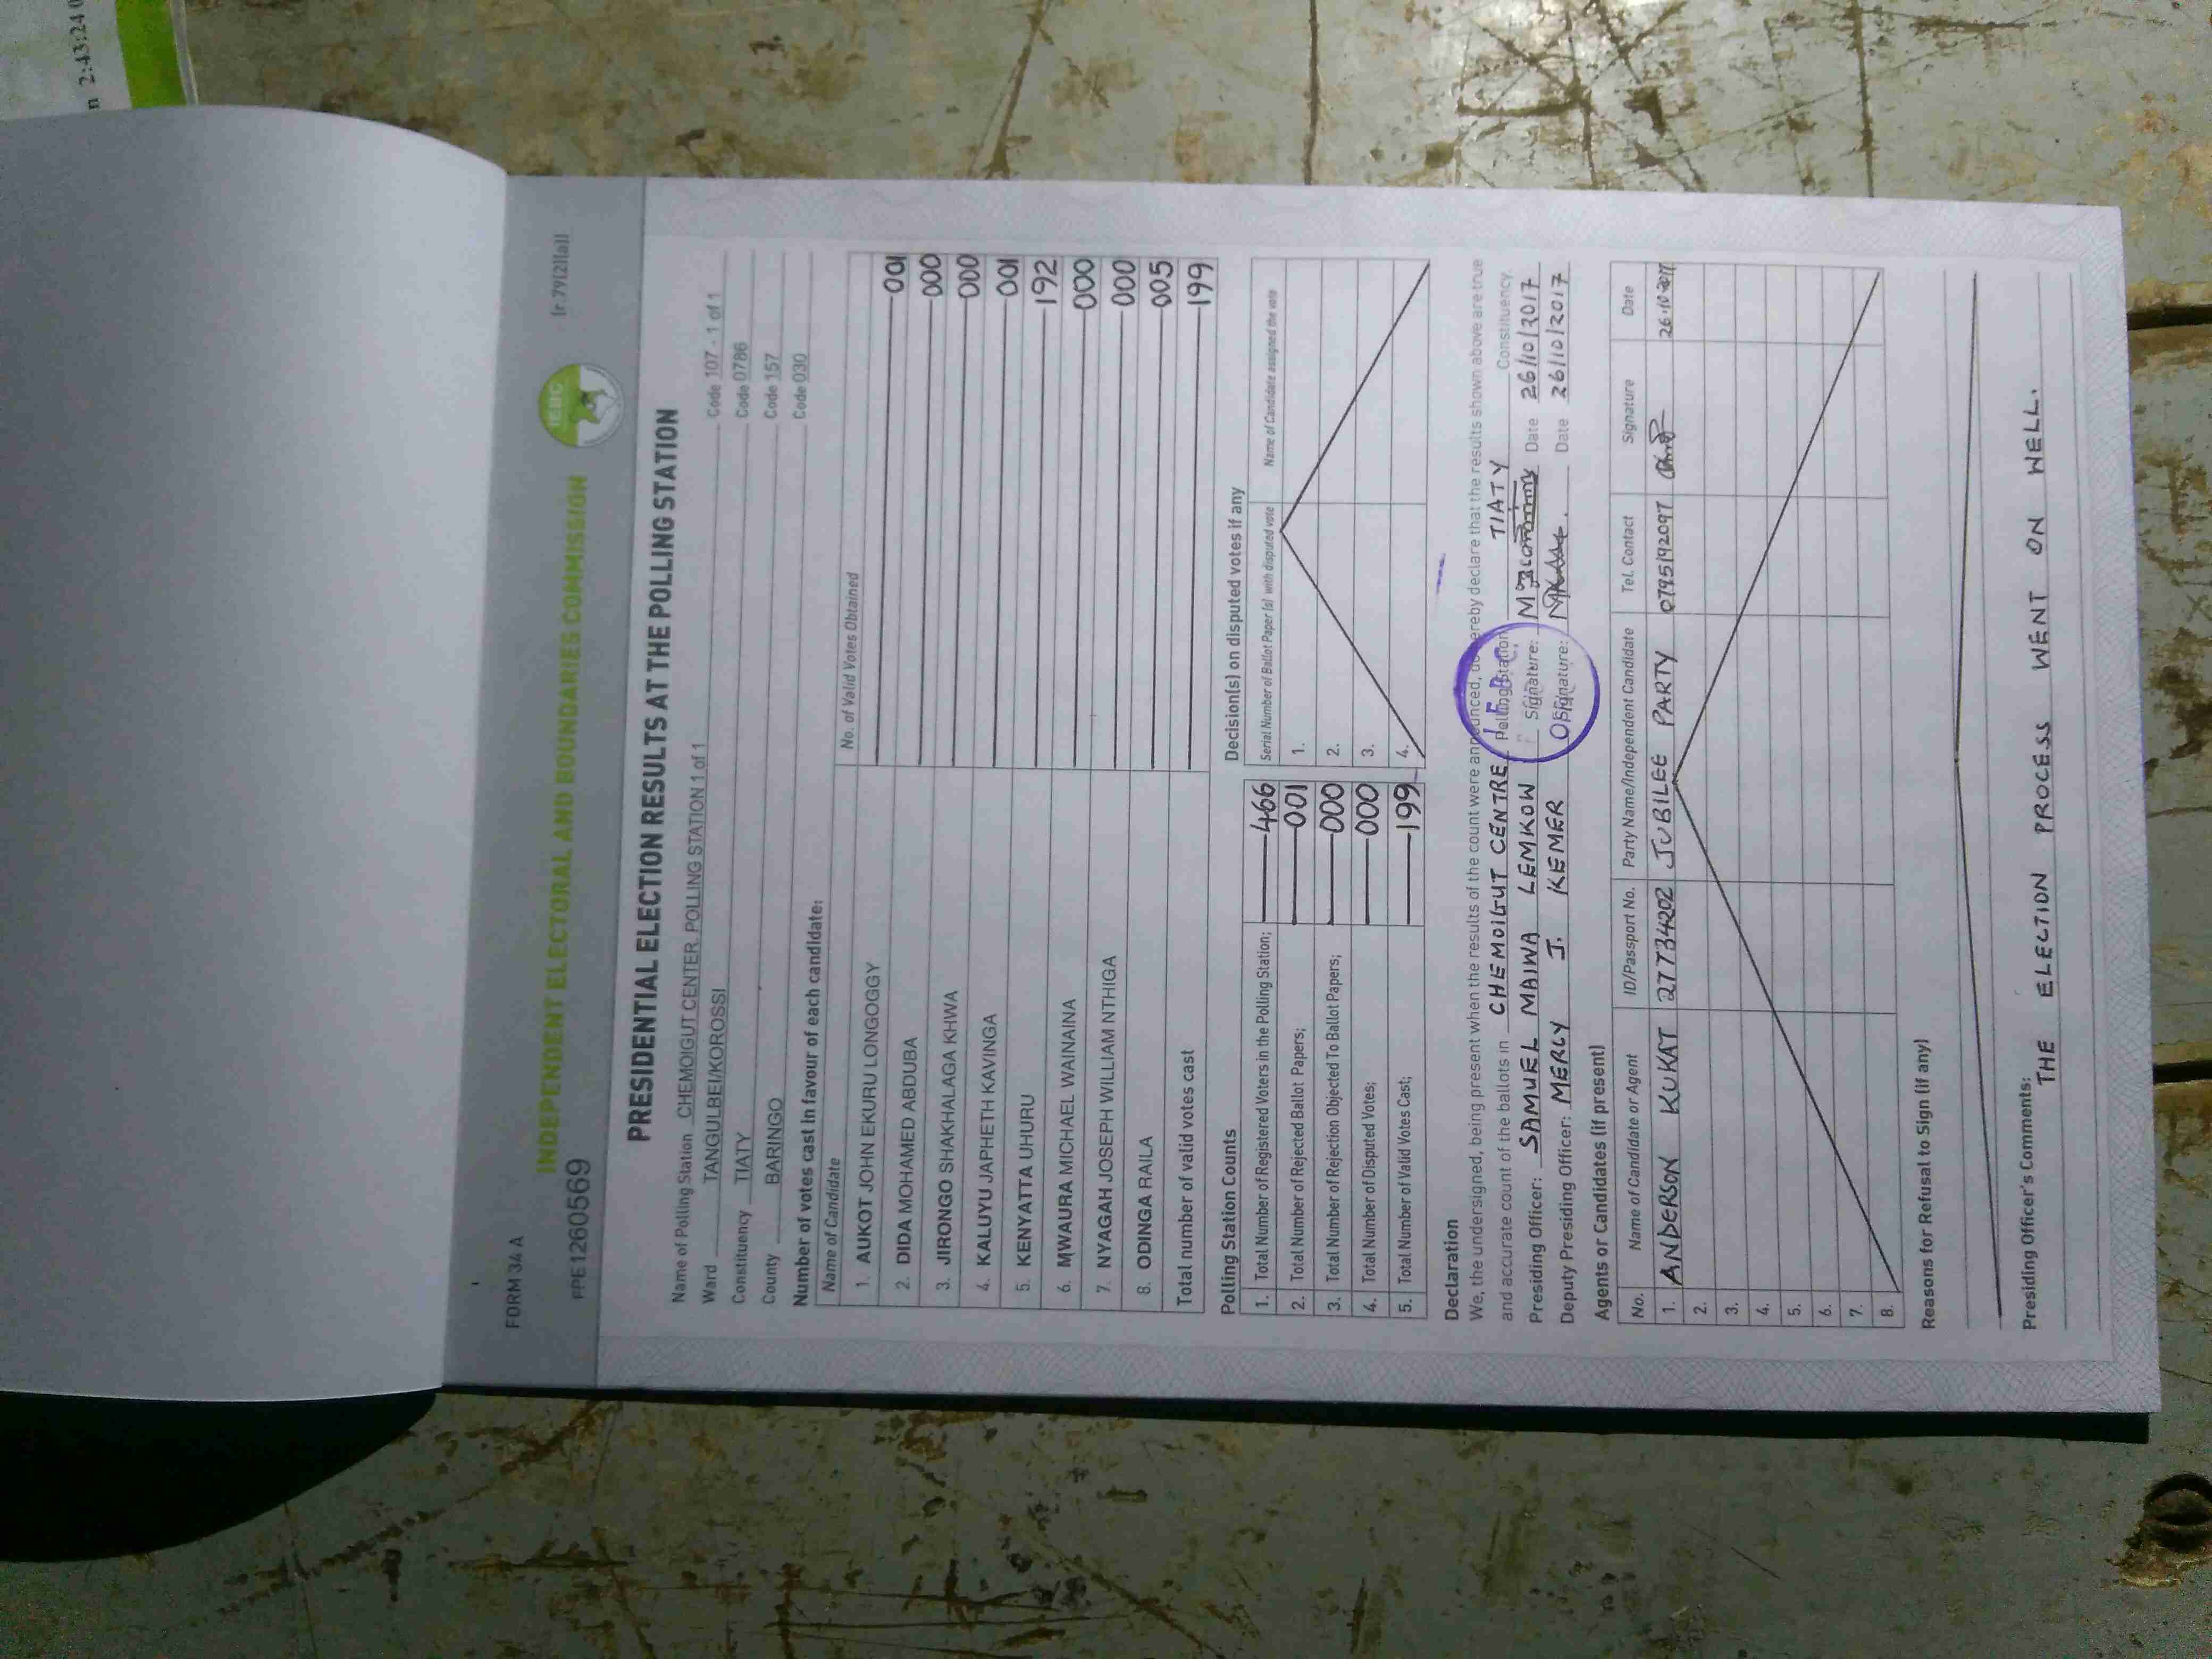 n 2:43:24
FORM 34 A
INDEPENDENT ELECTORAL AND BOUNDARIES COMMISSION
IEBC
PPE1260569
(r.79(2)(a))
PRESIDENTIAL ELECTION RESULTS AT THE POLLING STATION
Name of Polling Station CHEMOIGUT CENTER POLLING STATION 1 of 1 Code 107 - 1 of 1
Ward TANGULBEI/KOROSSI Code 0786
Constituency TIATY Code 157
County BARINGO Code 030
Number of votes cast in favour of each candidate:
Name of Candidate No. of Valid Votes Obtained
1. AUKOT JOHN EKURU LONGOGGY 001
2. DIDA MOHAMED ABDUBA 000
3. JIRONGO SHAKHALAGA KHWA 000
4. KALUYU JAPHETH KAVINGA 001
5. KENYATTA UHURU 192
6. MWAURA MICHAEL WAINAINA 000
7. NYAGAH JOSEPH WILLIAM NTHIGA 000
8. ODINGA RAILA 005
Total number of valid votes cast 199
Polling Station Counts
1. Total Number of Registered Voters in the Polling Station; 466
2. Total Number of Rejected Ballot Papers; 001
3. Total Number of Rejection Objected To Ballot Papers; 000
4. Total Number of Disputed Votes; 000
5. Total Number of Valid Votes Cast; 199
Decision(s) on disputed votes if any
Serial Number of Ballot Paper (s) with disputed vote Name of Candidate assigned the vote
1.
2.
3.
4.
Declaration
We, the undersigned, being present when the results of the count were announced, do hereby declare that the results shown above are true
and accurate count of the ballots in CHEMOIGUT CENTRE Polling Station TIATY Constituency
Presiding Officer: SAMUEL MAIWA LEMKOW Signature: Date 26/10/2017
Deputy Presiding Officer: MERLY J. KEMER Signature: Date 26/10/2017
Agents or Candidates (if present)
No. Name of Candidate or Agent ID/Passport No. Party Name/Independent Candidate Tel. Contact Signature Date
1. ANDERSON KUKAT 27734202 JUBILEE PARTY 0795192097 26.10.2017
2.
3.
4.
5.
6.
7.
8.
Reasons for Refusal to Sign (if any)
Presiding Officer's Comments:
THE ELECTION PROCESS WENT ON WELL.